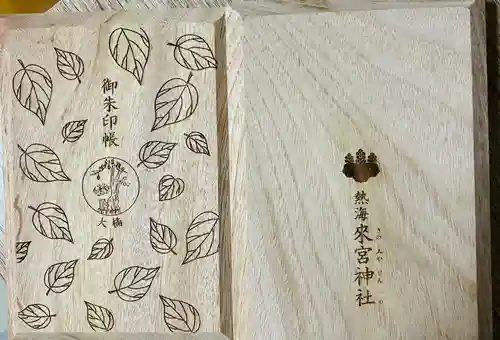 御朱印帳
大楠
熱海
來宮神社
きの みや じん じゃ